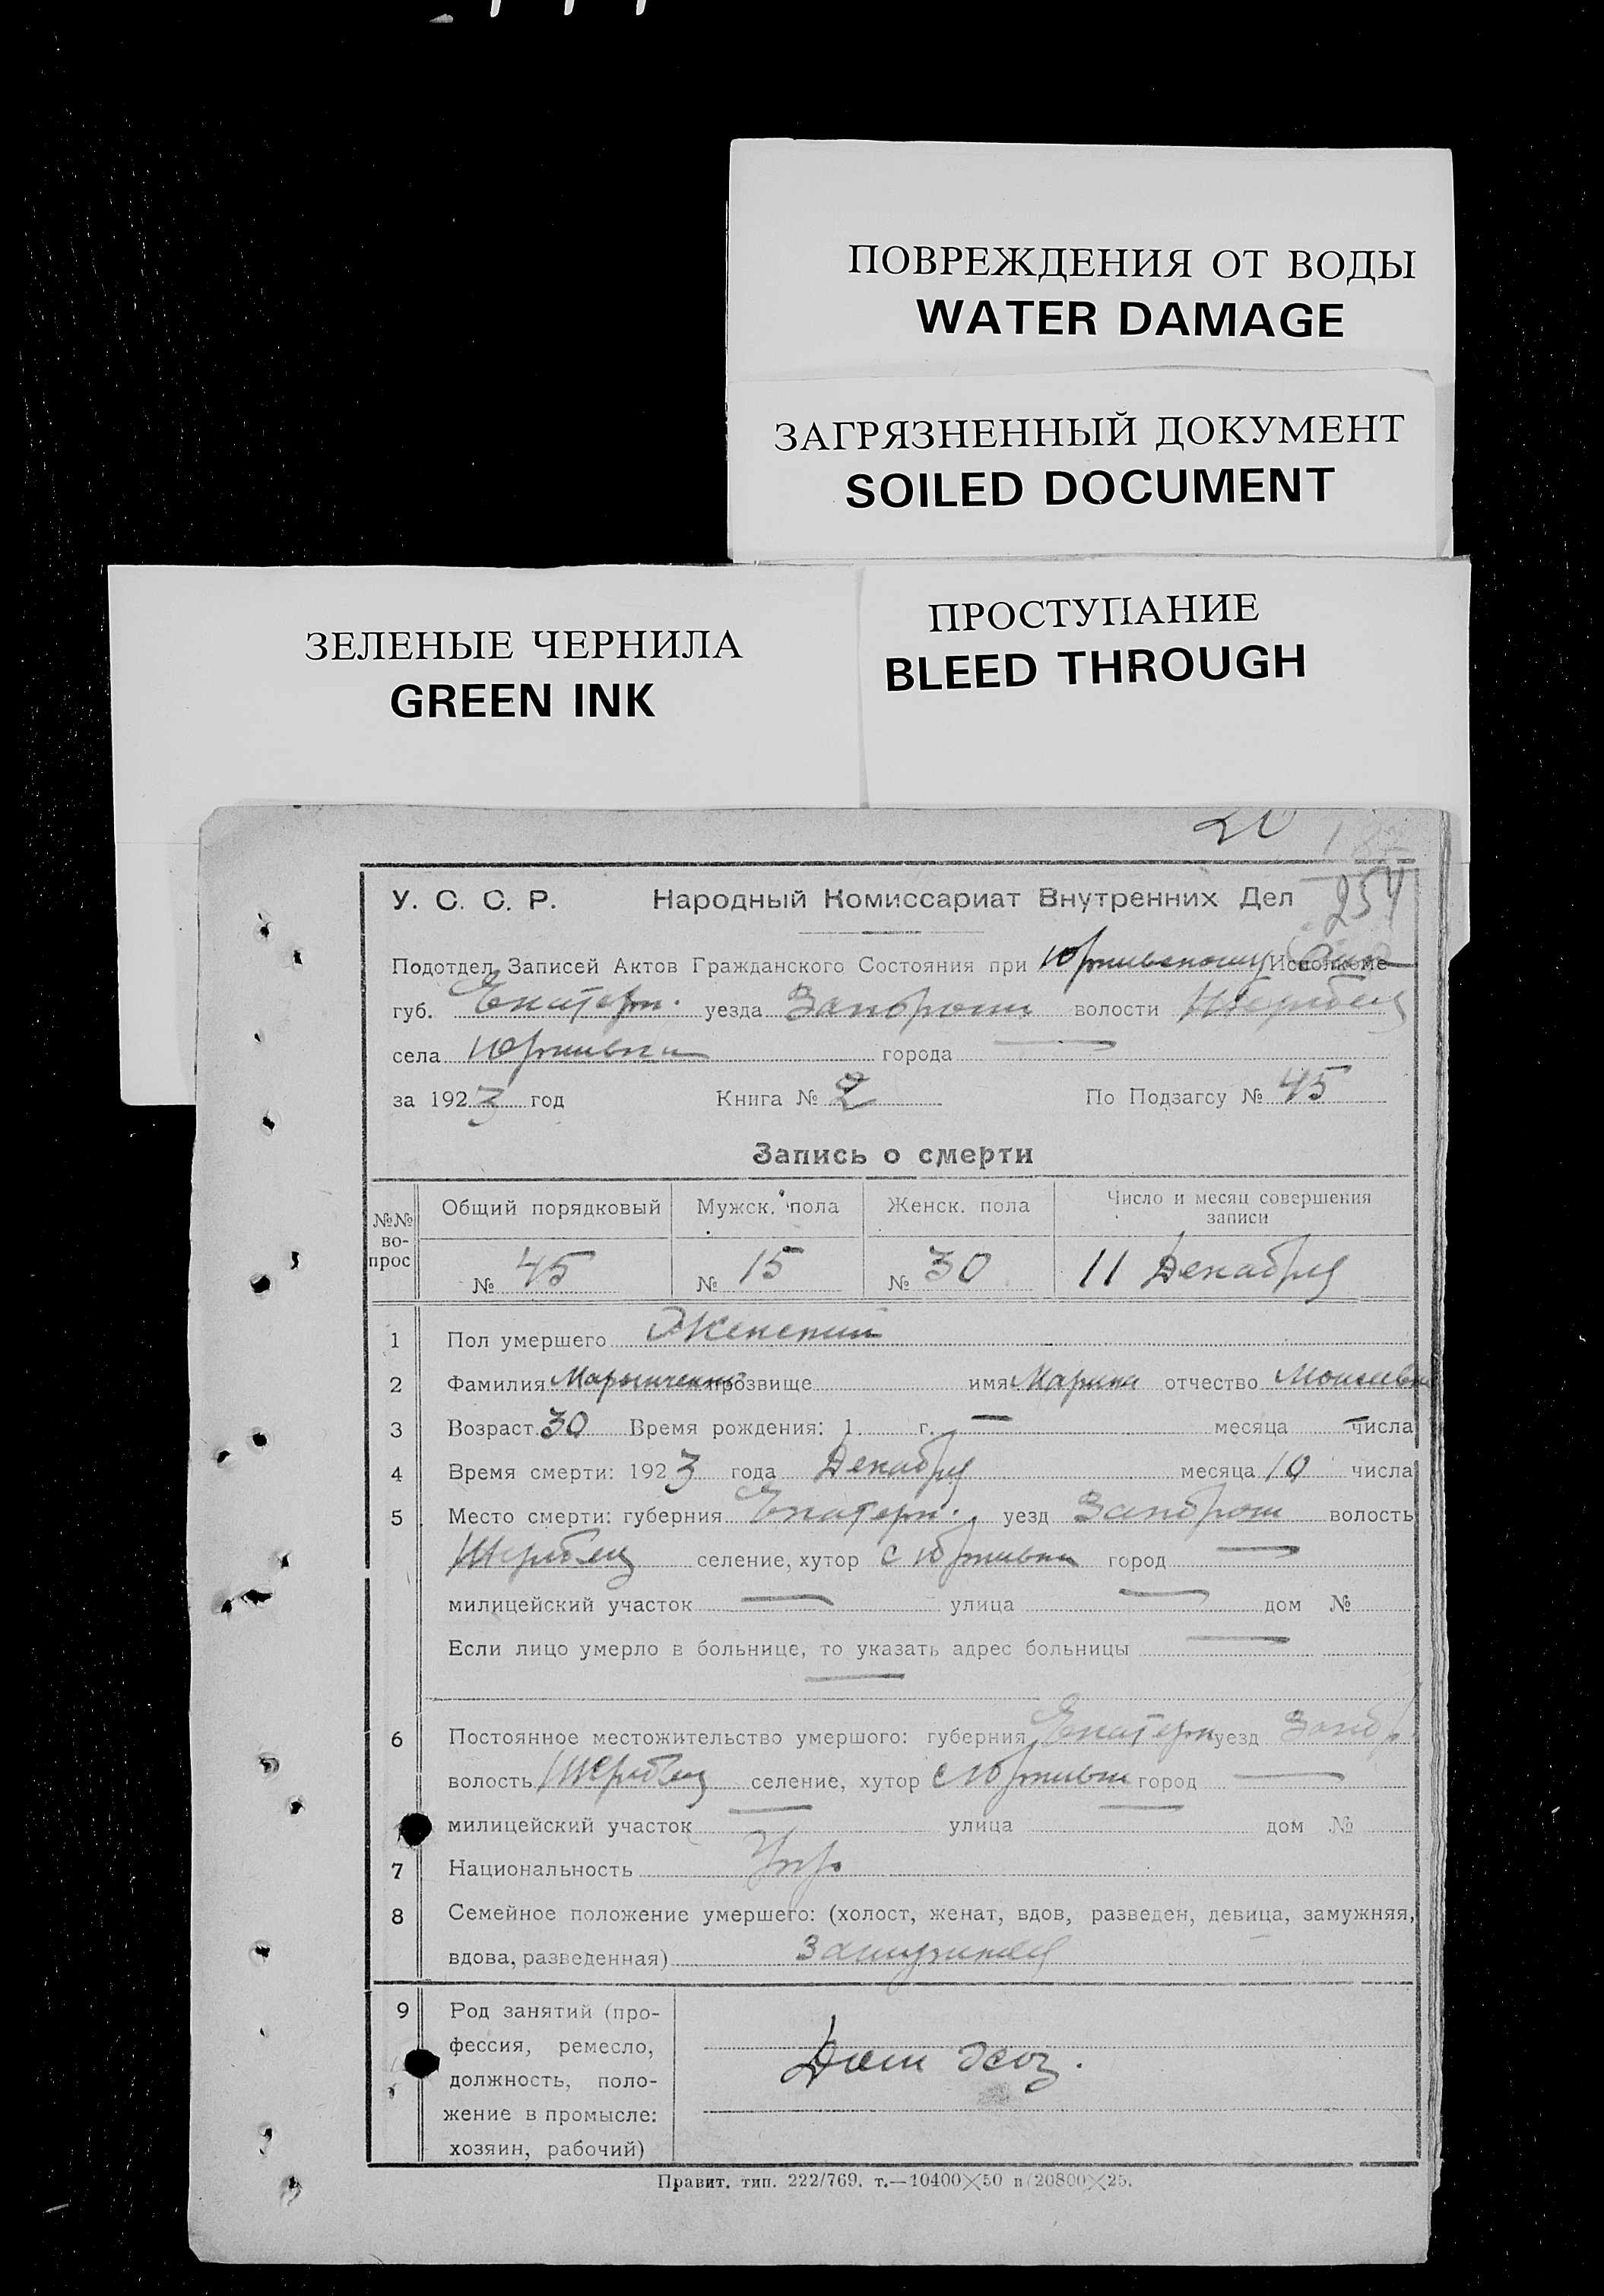 ПОВРЕЖДЕНИЯ ОТ ВОДЫ
WATER DAMAGE
ЗАГРЯЗНЕННЫЙ ДОКУМЕНТ
SOILED DOCUMENT
ЗЕЛЕНЫЕ ЧЕРНИЛА
GREEN INK
ПРОСТУПАНИЕ
BLEED THROUGH
20
254
У. С. С. Р. Народный Комиссариат Внутренних Дел
Подотдел Записей Актов Гражданского Состояния при Исполкоме
губ. Екатерн. уезда Запорож волости Щербец
села Юрживки города —
за 1923 год Книга № 2 По Подзагсу № 45
Запись о смерти
№№ вопрос Общий порядковый Мужск. пола Женск. пола Число и месяц совершения записи
№ 45 № 15 № 30 11 Декабря
1 Пол умершего Женский
2 Фамилия Марынченко прозвище имя Марина отчество Моисеевна
3 Возраст 30 Время рождения: 1 г. — месяца — числа
4 Время смерти: 1923 года Декабря месяца 10 числа
5 Место смерти: губерния Екатерн. уезд Запорож волость
Щербец селение, хутор с Юрживки город —
милицейский участок — улица — дом №
Если лицо умерло в больнице, то указать адрес больницы —
—
6 Постоянное местожительство умершого: губерния Екатерн уезд Запор.
волость Щербец селение, хутор с Юрживки город —
милицейский участок — улица — дом №
7 Национальность Укр.
8 Семейное положение умершего: (холост, женат, вдов, разведен, девица, замужняя,
вдова, разведенная) Замужняя
9 Род занятий (про-
фессия, ремесло,
должность, поло-
жение в промысле:
хозяин, рабочий)
Дом хоз.
Правит. тип. 222/769. т.—10400×50 и 20800×25.